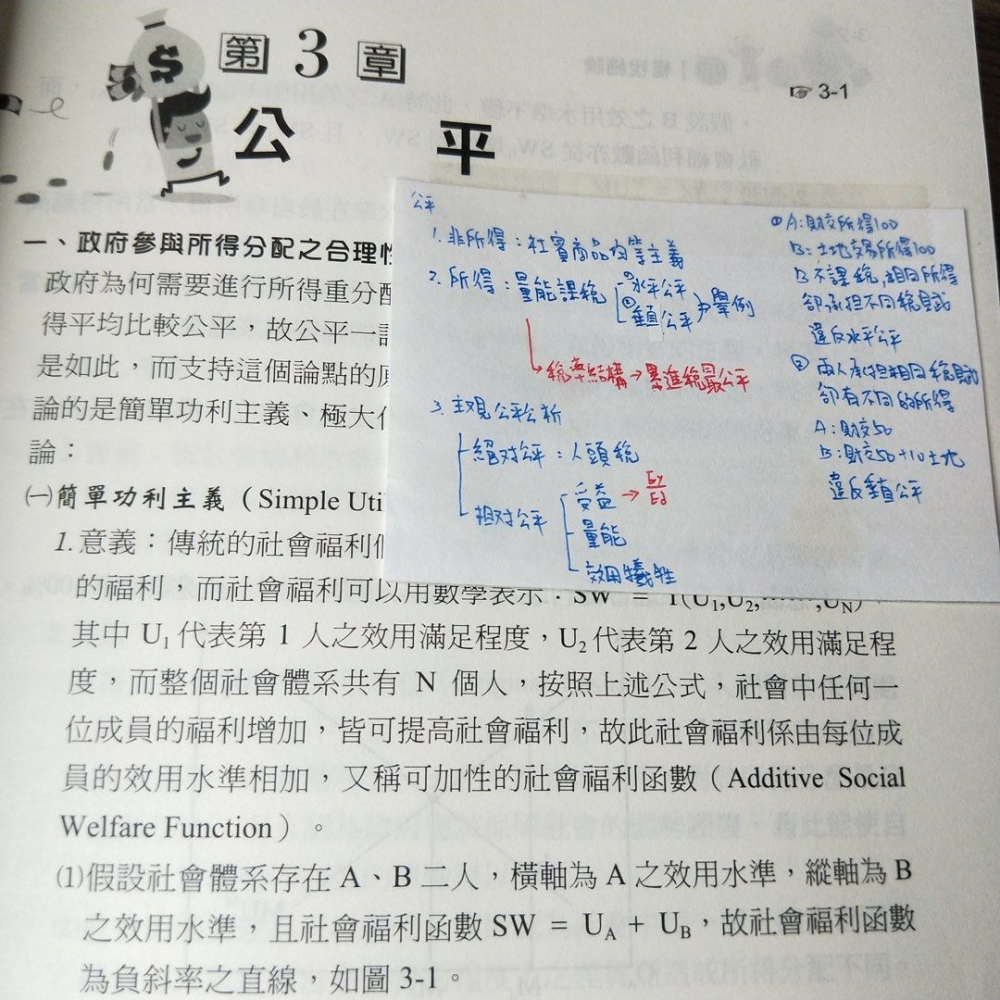 第 3 章
3-1
公 平
一、政府參與所得分配之合理性
政府為何需要進行所得重分配
得平均比較公平，故公平一
是如此，而支持這個論點的
論的是簡單功利主義、極大
論：
㈠簡單功利主義（Simple Uti
1.意義：傳統的社會福利
的福利，而社會福利可以用數學表示：SW = f(U₁,U₂,……,U_N)，
其中 U₁ 代表第 1 人之效用滿足程度，U₂ 代表第 2 人之效用滿足程
度，而整個社會體系共有 N 個人，按照上述公式，社會中任何一
位成員的福利增加，皆可提高社會福利，故此社會福利係由每位成
員的效用水準相加，又稱可加性的社會福利函數（Additive Social
Welfare Function）。
⑴假設社會體系存在 A、B 二人，橫軸為 A 之效用水準，縱軸為 B
之效用水準，且社會福利函數 SW = U_A + U_B，故社會福利函數
為負斜率之直線，如圖 3-1。
公平
1. 非所得：社實商品均等主義
2. 所得：量能課稅
①水平公平
②垂直公平
舉例
稅率結構→累進稅最公平
3. 主观公平分析
絕对公平：人頭稅
相对公平
受益→Ey/Ed
量能
效用犧牲
①A:財交所得100
B:土地交易所得100
B不課稅,相同所得
卻承担不同稅賦
違反水平公平
②兩人承担相同稅賦
卻有不同的所得
A:財交50
B:財交50+10土地
違反垂直公平